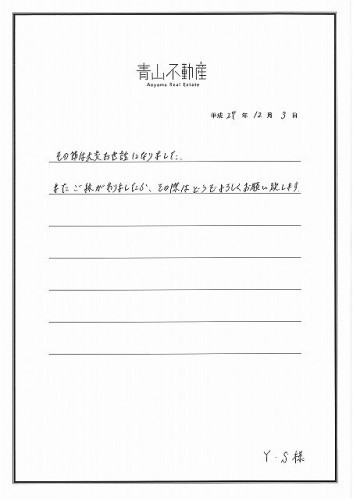 青山不動産
Aoyama Real Estate
平成 27 年 12 月 3 日
その節は大変お世話になりました。
またご縁がありましたら、その際はどうぞよろしくお願い致します
Y・S 様